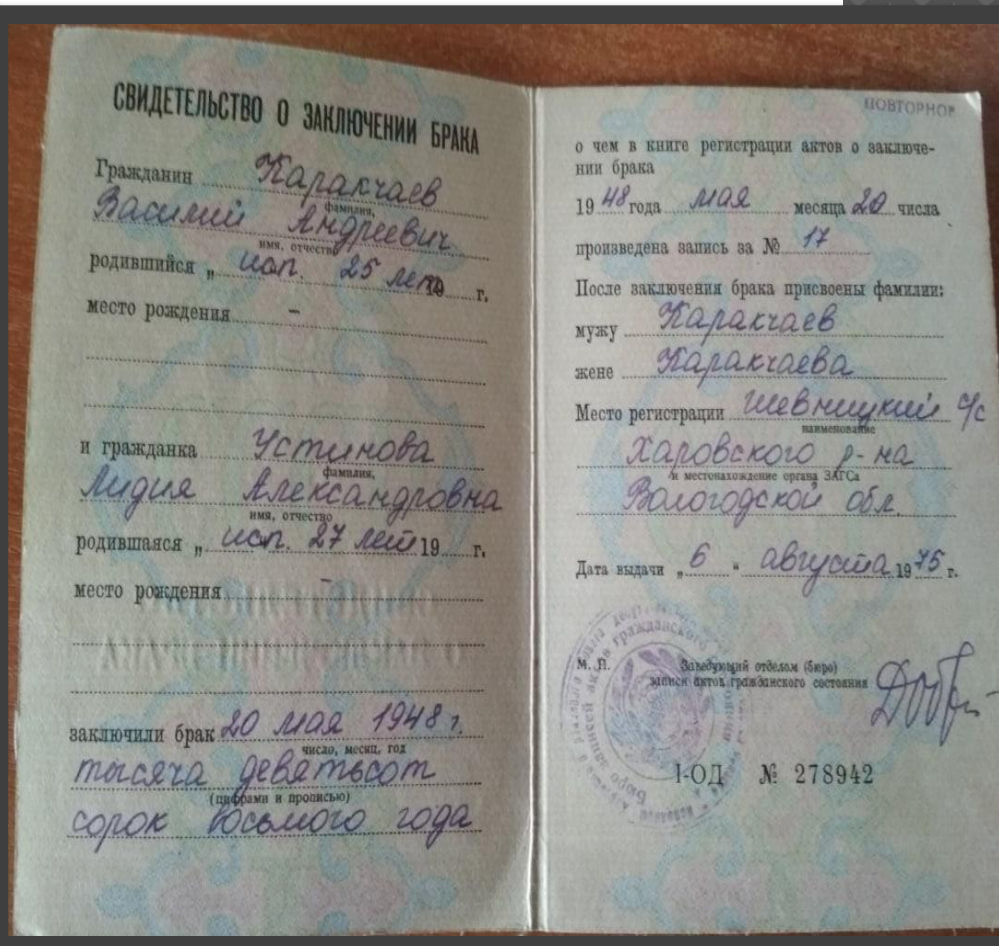 СВИДЕТЕЛЬСТВО О ЗАКЛЮЧЕНИИ БРАКА
Гражданин Каракчаев
фамилия,
Василий Андреевич
имя, отчество
родившийся „ исп. 25 лет 19 г.
место рождения –
и гражданка Устинова
фамилия,
Лидия Александровна
имя, отчество
родившаяся „ исп. 27 лет 19 г.
место рождения –
заключили брак 20 мая 1948 г.
число, месяц, год
тысяча девятьсот
(цифрами и прописью)
сорок восьмого года
ПОВТОРНОЕ
о чем в книге регистрации актов о заключе-
нии брака
1948 года мая месяца 20 числа
произведена запись за № 17
После заключения брака присвоены фамилии:
мужу Каракчаев
жене Каракчаева
Место регистрации Шевницкий с/с
наименование
Харовского р-на
и местонахождение органа ЗАГСа
Вологодской обл.
Дата выдачи „ 6 " августа 1975 г.
М. П. Заведующий отделом (бюро)
записи актов гражданского состояния
I-ОД № 278942